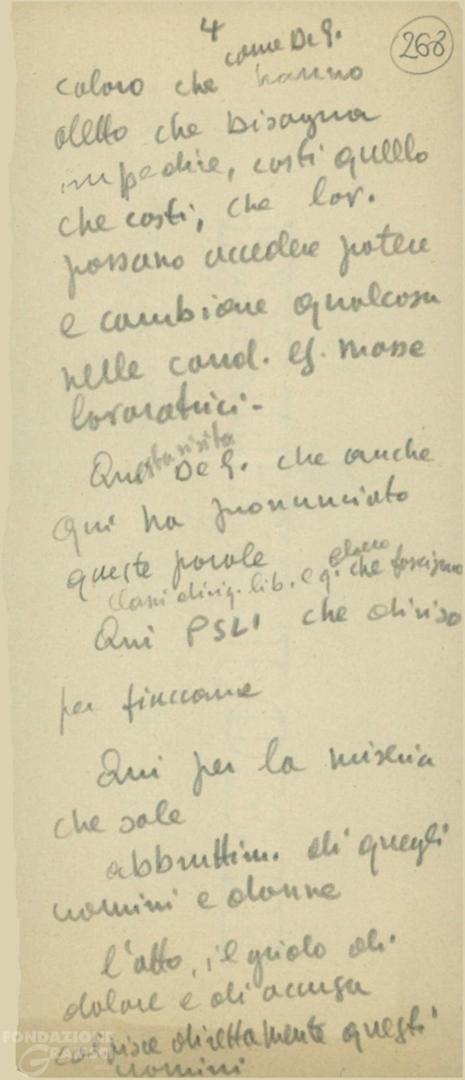 4
268
come De G.
coloro che hanno
detto che bisogna
impedire, costi quello
che costi, che lav.
possano accedere potere
e cambiare qualcosa
nelle cond. es. masse
lavoratrici -
Questa visita
De G. che anche
qui ha pronunciato
queste parole
Classi dirig. lib. e q. che fascismo
Qui PSLI che diviso
per fiaccare
Qui per la miseria
che sale
abbruttim. di quegli
uomini e donne
l'atto, il grido di
dolore e di accusa
colpisce direttamente questi
uomini
FONDAZIONE
GRAMSCI